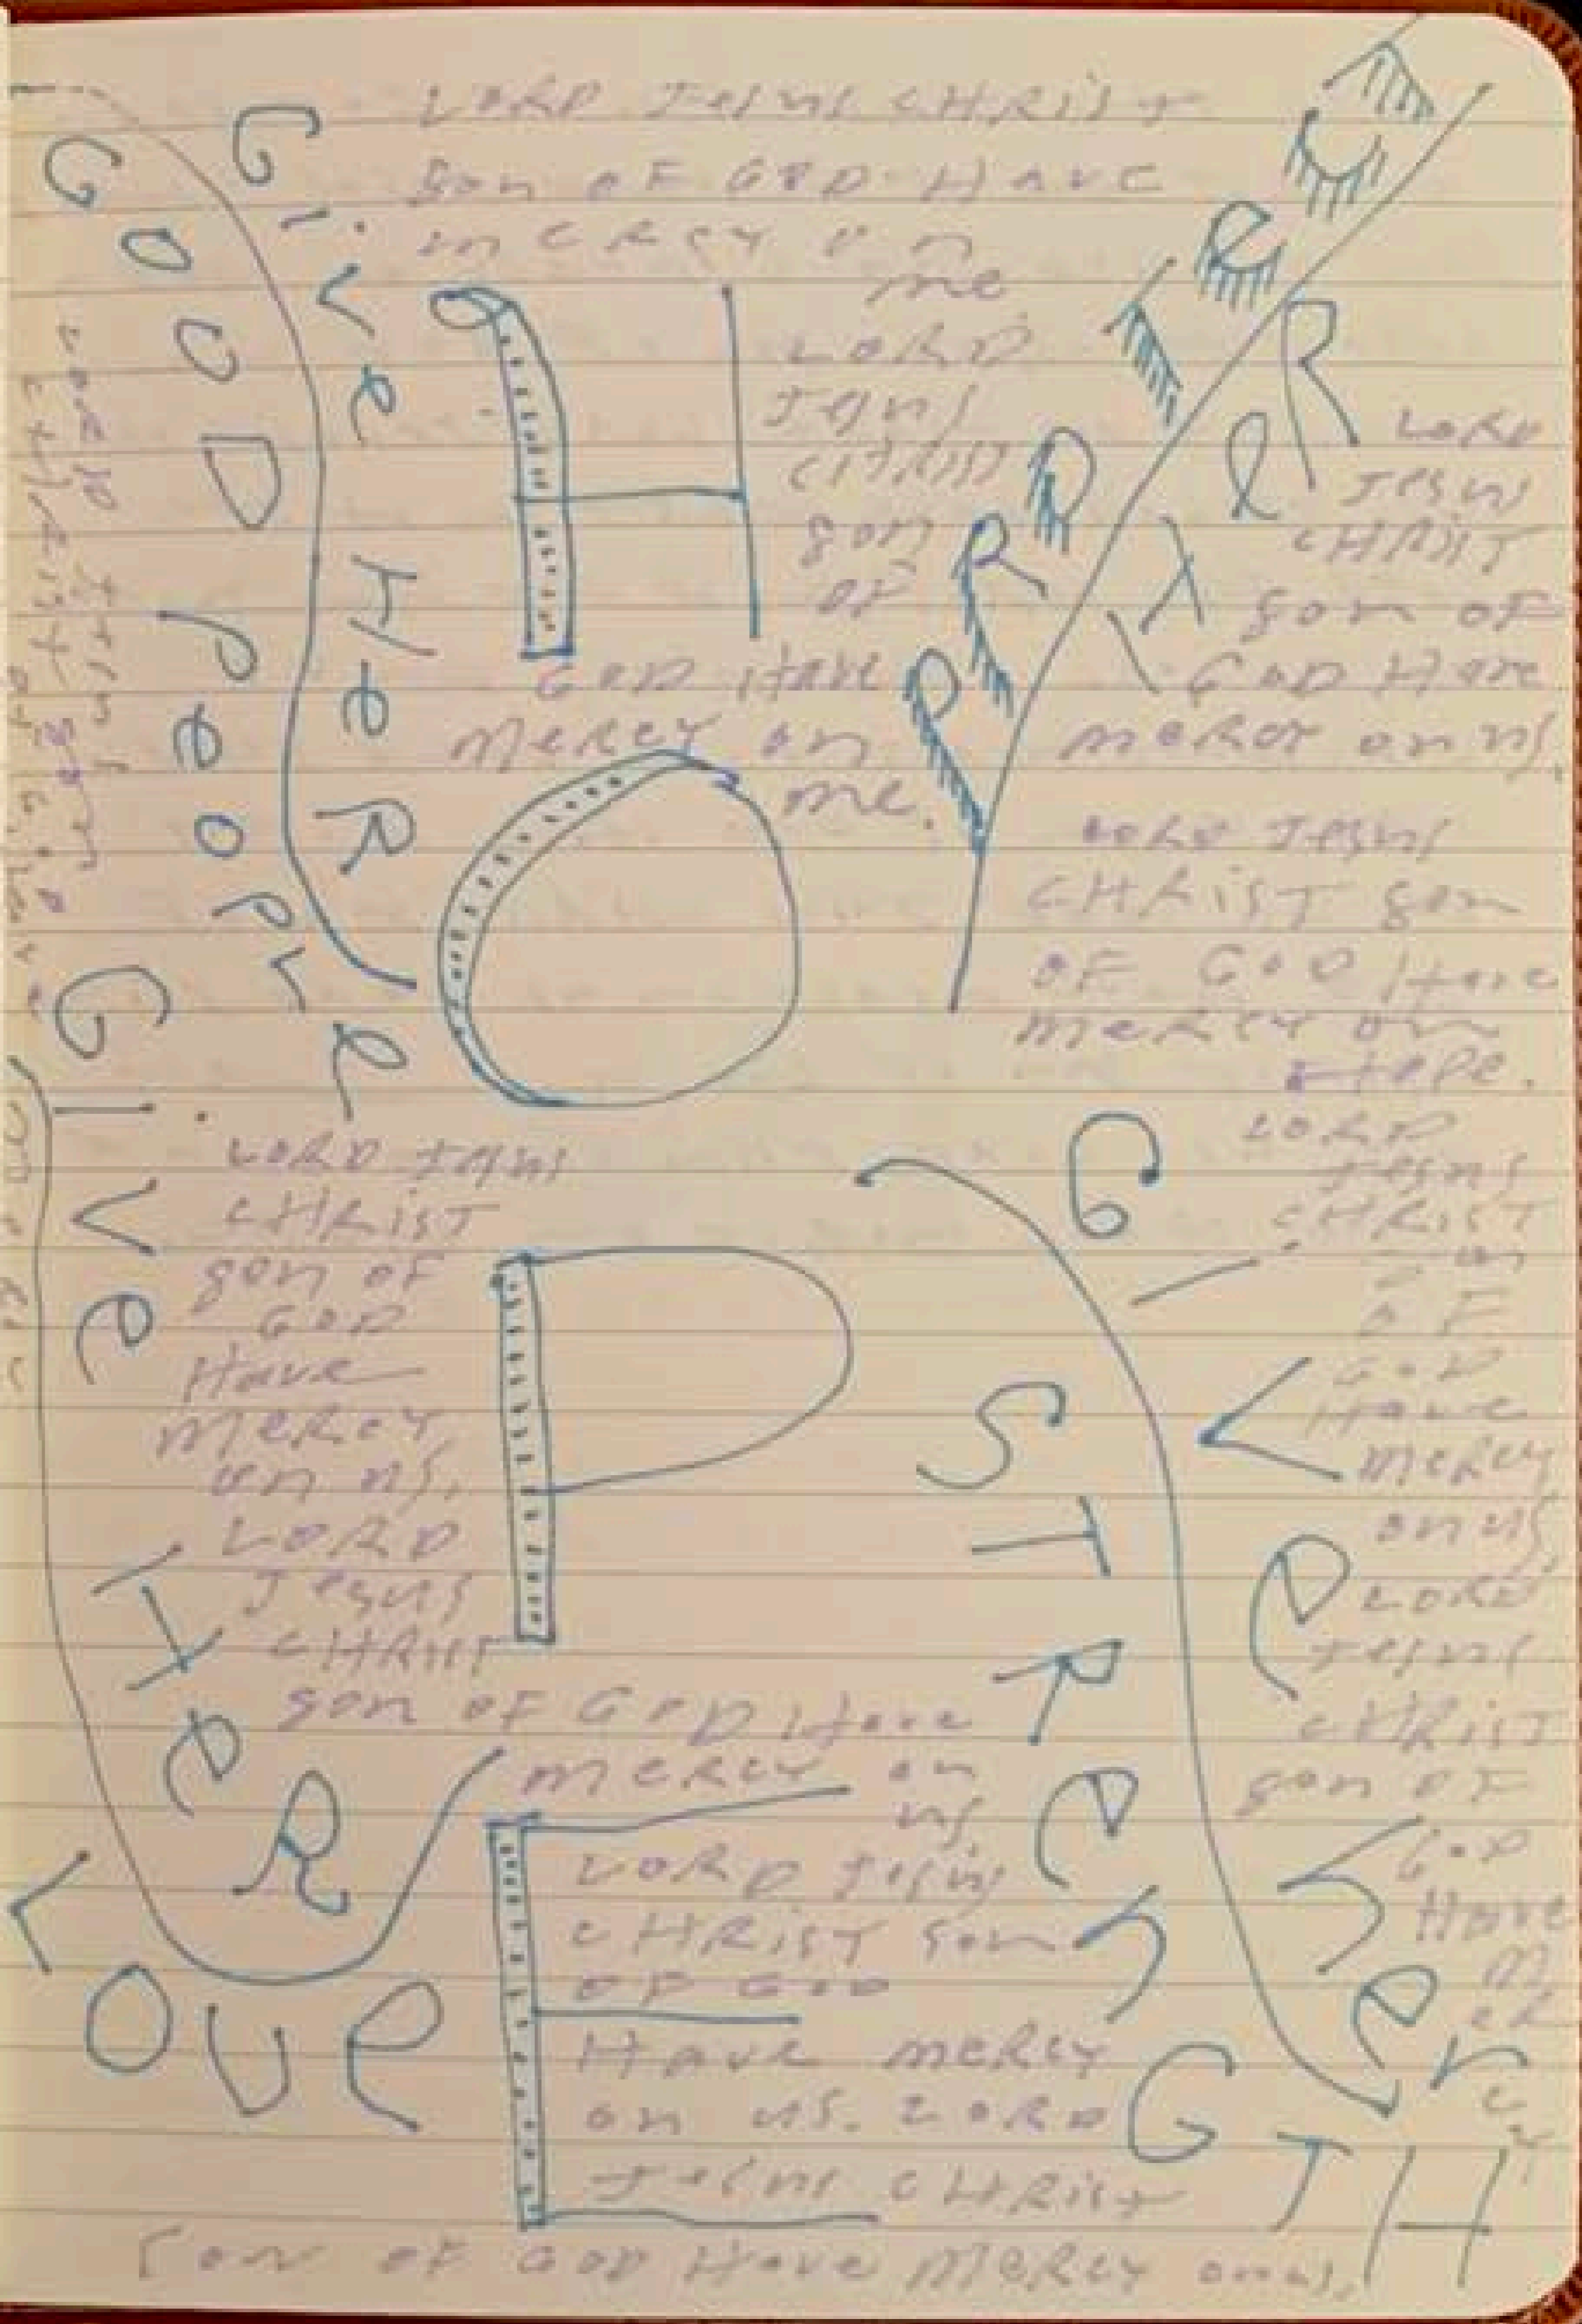 LORD Jesus CHRist
Son oF GOD Have
merccy on
me
LORD
Jesus
CHRist
Son
oF
GOD Have
Mercy on
me.
Give HeR
GOOD PeoPLe
PROTeCT
HeR
LORD
Jesus
CHRist
Son oF
GOD Have
mercy on us.
LORD Jesus
CHRist Son
oF GOD Have
mercy on
Hope.
H
O
P
E
LORD
Jesus
CHRist
oF
GOD
Have
mercy
on us,
LORD
Jesus
CHRist
Son oF
GOD
Have
Give her
STRenGTH
Give HeR
Love
LORD Jesus
CHRist
Son oF
GOD
Have
MeRcy
on us,
LORD
Jesus
CHRist
Son oF GOD Have
mercy on
us,
LORD Jesus
CHRist Son
oF GOD
Have mercy
on us. LORD
Jesus CHRist
Son oF GOD Have MeRcy on us,